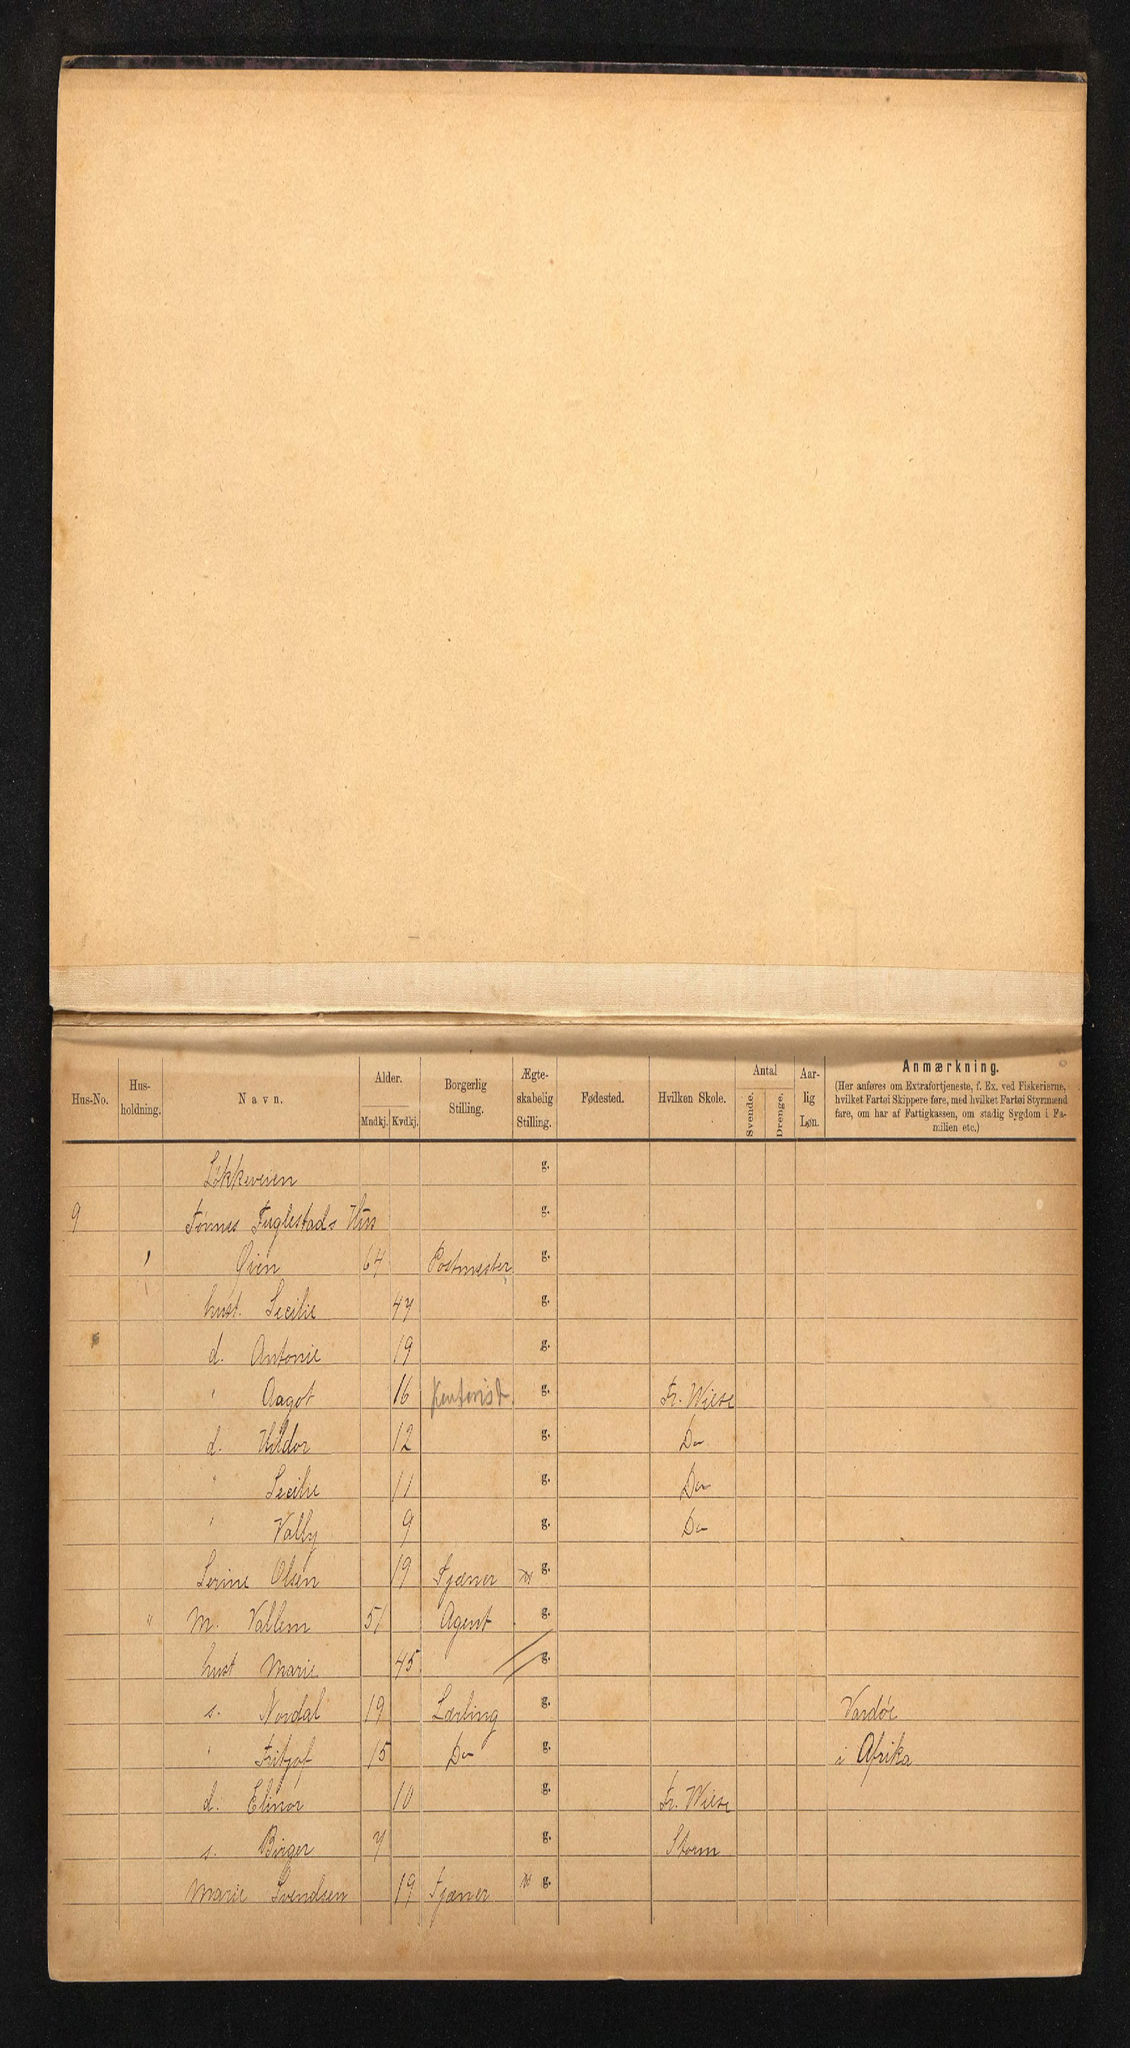 Hus-No. Hus-holdning. Navn. Alder. Mndkj. Kvdkj. Borgerlig Stilling. Ægte-skabelig Stilling. Fødested. Hvilken Skole. Antal Svende. Drenge. Aar-lig Løn. Anmærkning.
(Her anføres om Extrafortjeneste, f. Ex. ved Fiskerierne, hvilket Fartøi Skippere føre, med hvilket Fartøi Styrmænd fare, om har af Fattigkassen, om stadig Sygdom i Fa-milien etc.)
Løkkeveien g.
9 Tønnes Fuglestads Hus g.
Øien 64 Postmester g.
hust. Cecilie 47 g.
d. Antonie 19 g.
" Aagot 16 Kontorist. g. Fr. Wiese
d. Hildor 12 g. Do
" Cecilie 11 g. Do
" Valby 9 g. Do
Serine Olsen 19 Tjæner g.
" M. Vallem 51 Agent g.
hust Marie 45 g.
s. Nordal 19 Lærling g. Vardøe
" Fritjof 15 Do g. i Afrika
d. Elinor 10 g. Fr. Wiese
s. Birger 7 g. Storm
Marie Svendsen 19 Tjæner g.